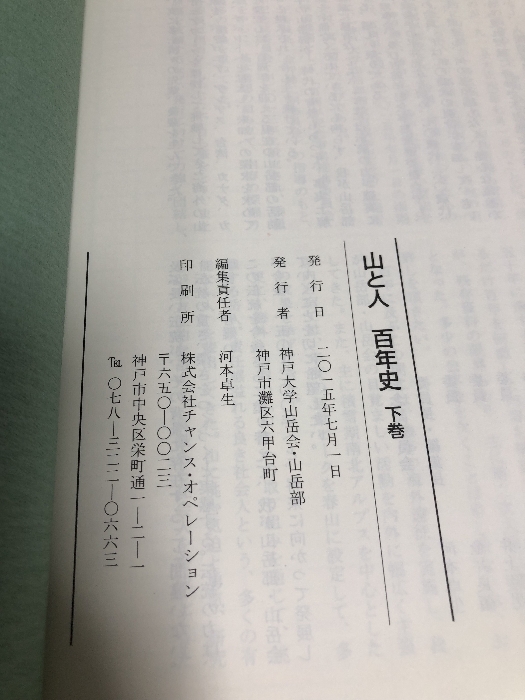 山と人　百年史　下巻
発行日　二〇一五年七月一日
発行者　神戸大学山岳会・山岳部
神戸市灘区六甲台町
編集責任者　河本卓生
印刷所　株式会社チャンス・オペレーション
〒六五〇―〇〇二三
神戸市中央区栄町通一―二―一
℡　〇七八―三二二―〇六六三